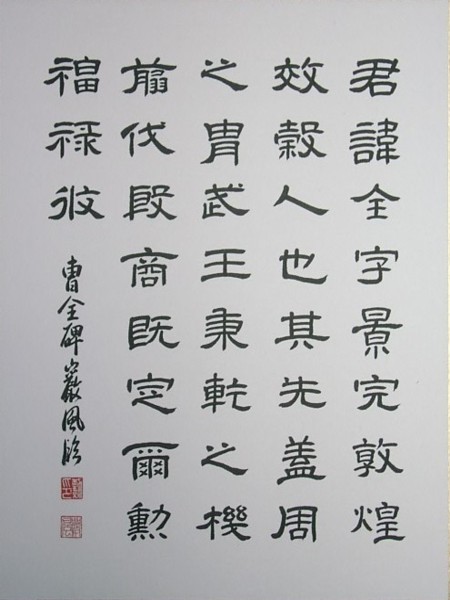 君諱全字景完敦煌
效穀人也其先蓋周
之胄武王秉乾之機
翦伐殷商既定爾勳
福祿攸
曹全碑巖風臨